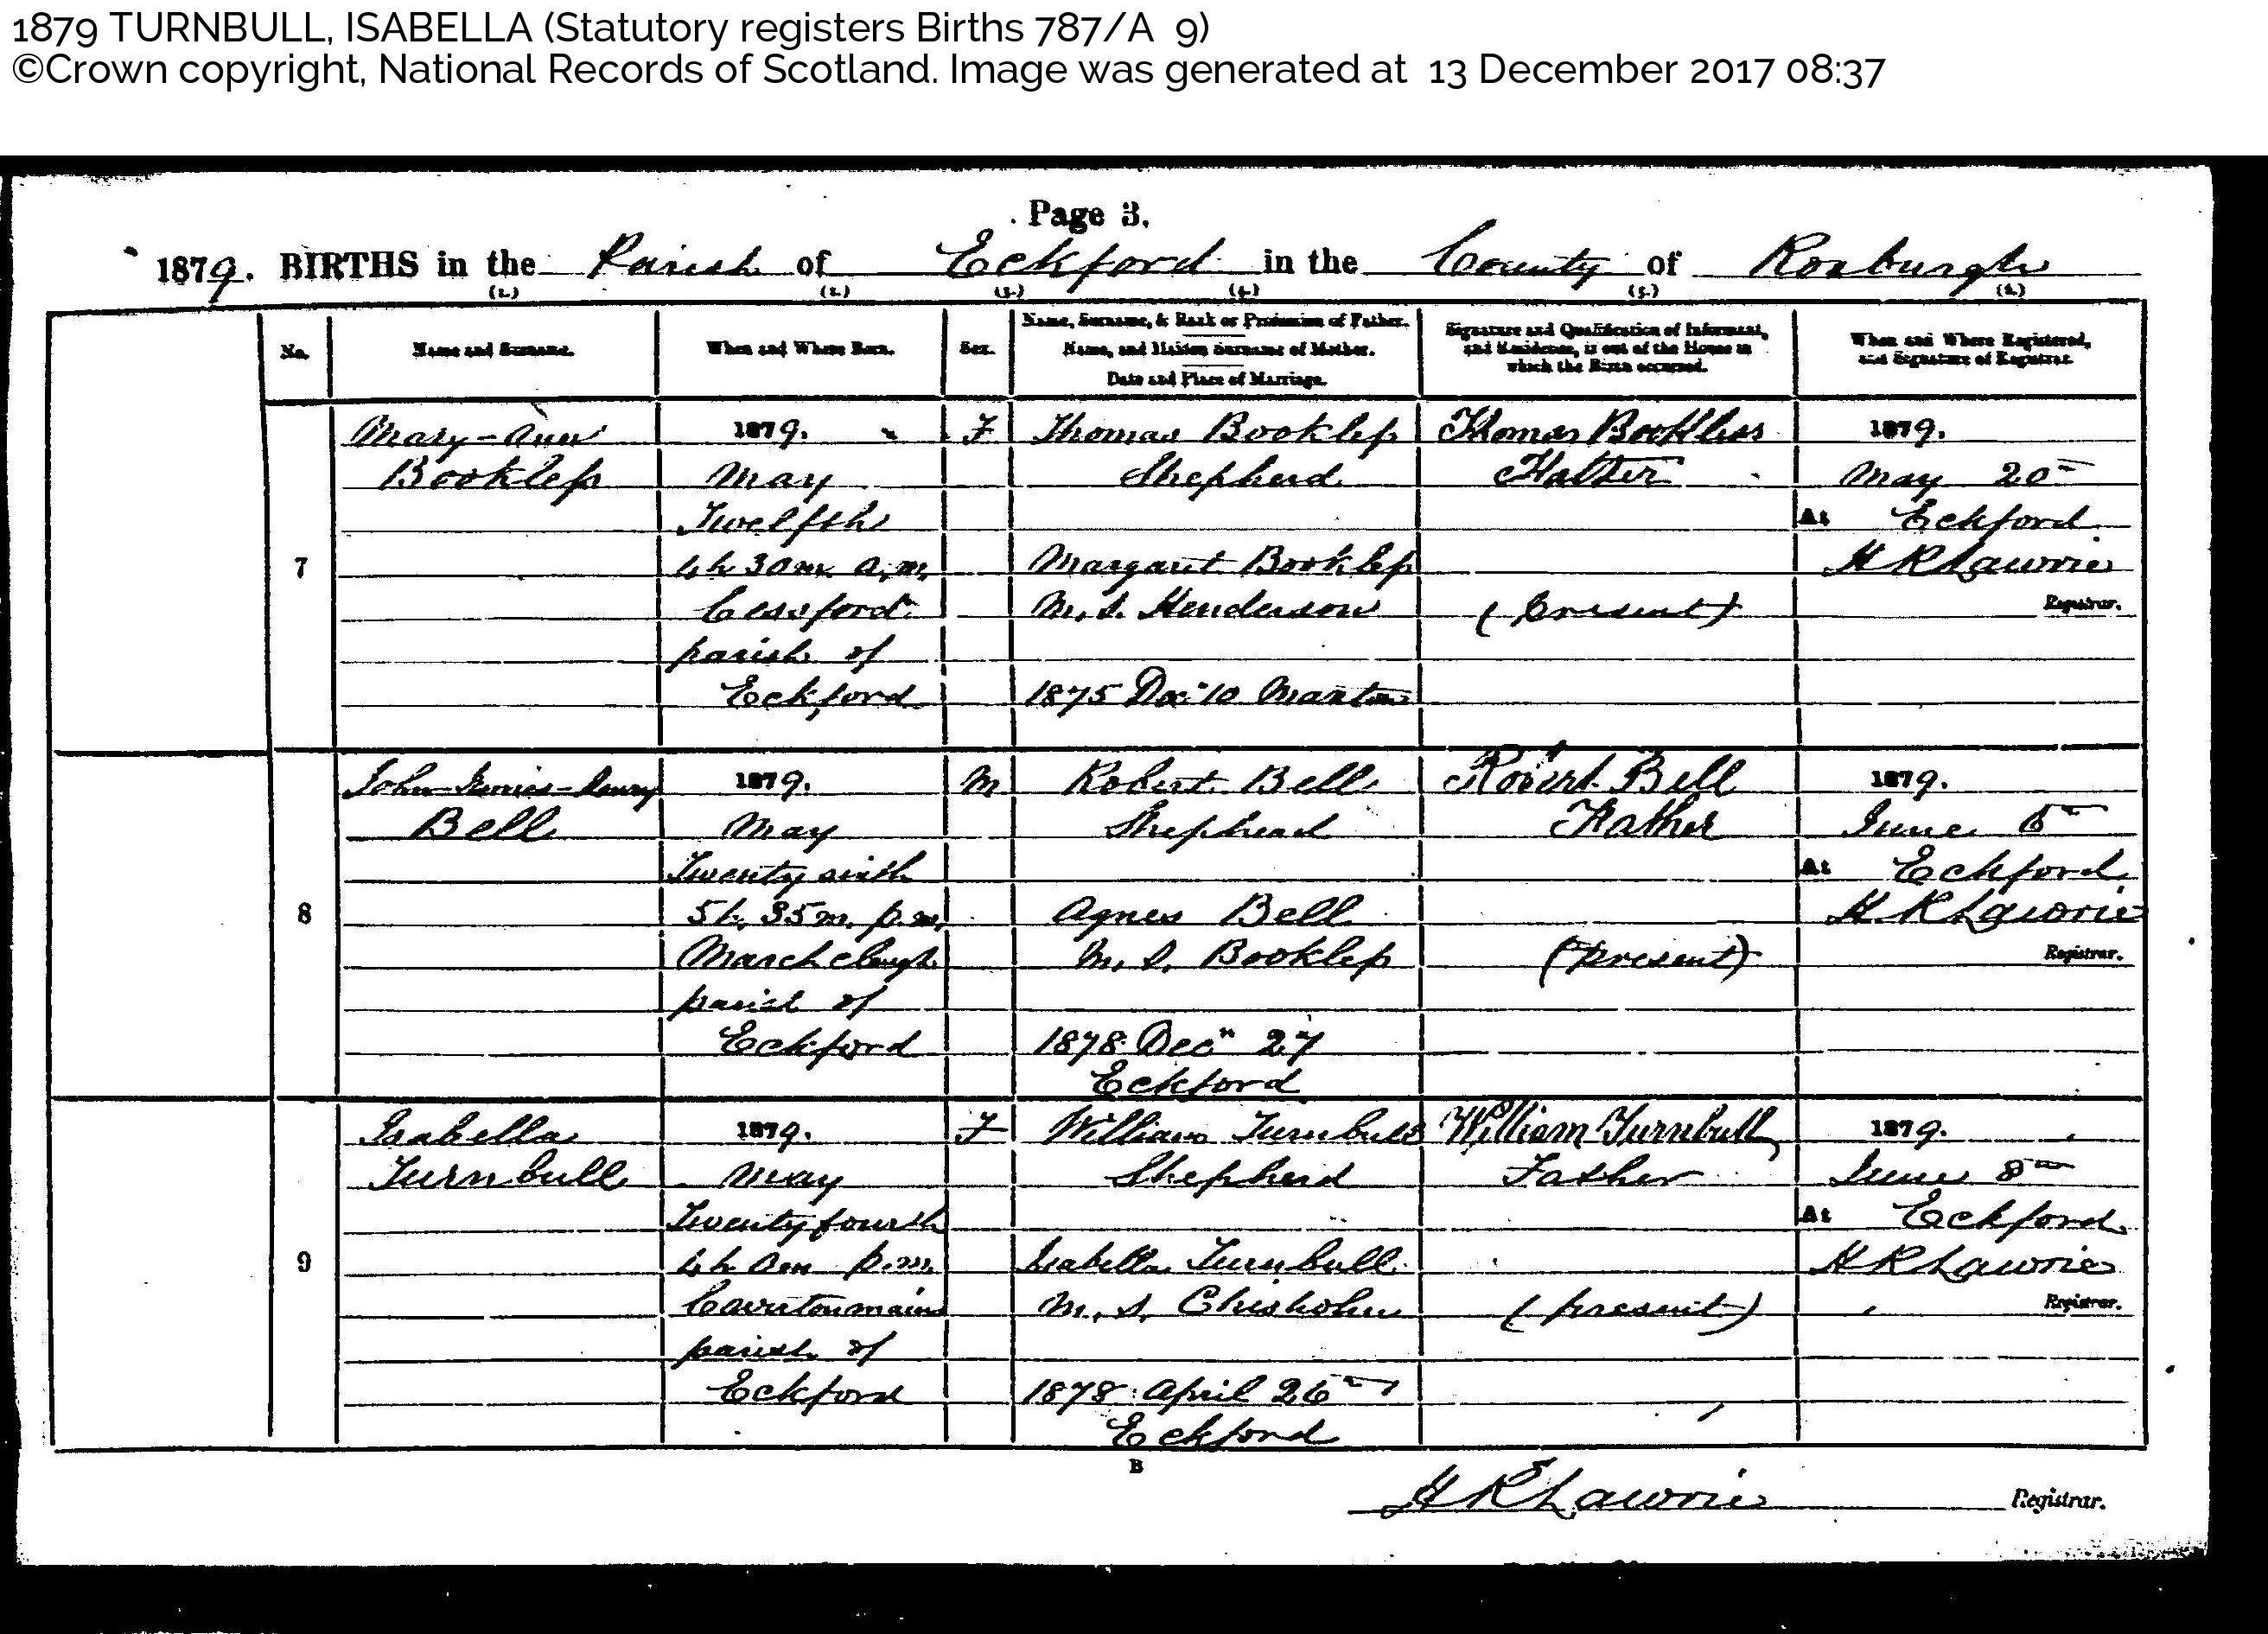 1879 TURNBULL, ISABELLA (Statutory registers Births 787/A 9)
©Crown copyright, National Records of Scotland. Image was generated at 13 December 2017 08:37
Page 3.
1879. BIRTHS in the Parish of Eckford in the County of Roxburgh
(1.) (2.) (3.) (4.) (5.) (6.)
No.
Name and Surname.
When and Where Born.
Sex.
Name, Surname, & Rank or Profession of Father.
Name, and Maiden Surname of Mother.
Date and Place of Marriage.
Signature and Qualification of Informant,
and Residence, if out of the House in
which the Birth occurred.
When and Where Registered,
and Signature of Registrar.
7
Mary-Ann
Bookless
1879.
May
Twelfth
4h 30m. a.m.
Cessford
parish of
Eckford
F
Thomas Bookless
Shepherd
Margaret Bookless
M.S. Henderson
1875 Dec 10 Maxton
Thomas Bookless
Father
(Present)
1879.
May 20
At Eckford
H R Lawrie
Registrar.
8
John-James-Henry
Bell
1879.
May
Twenty sixth
5h. 35m. p.m.
parish of
Eckford
M
Robert Bell
Shepherd
Agnes Bell
M.S. Bookless
1878 Decr 27
Eckford
Robert Bell
Father
(present)
1879.
June
At Eckford
H R Lawrie
Registrar.
9
Isabella
Turnbull
1879.
May
Twenty fourth
4h 0m p.m.
Cavertonmains
parish of
Eckford
F
William Turnbull
Shepherd
Isabella Turnbull
M.S. Chisholm
1878 April 26th
Eckford
William Turnbull
Father
(present)
1879.
June 8th
At Eckford
H R Lawrie
Registrar.
B
H R Lawrie Registrar.